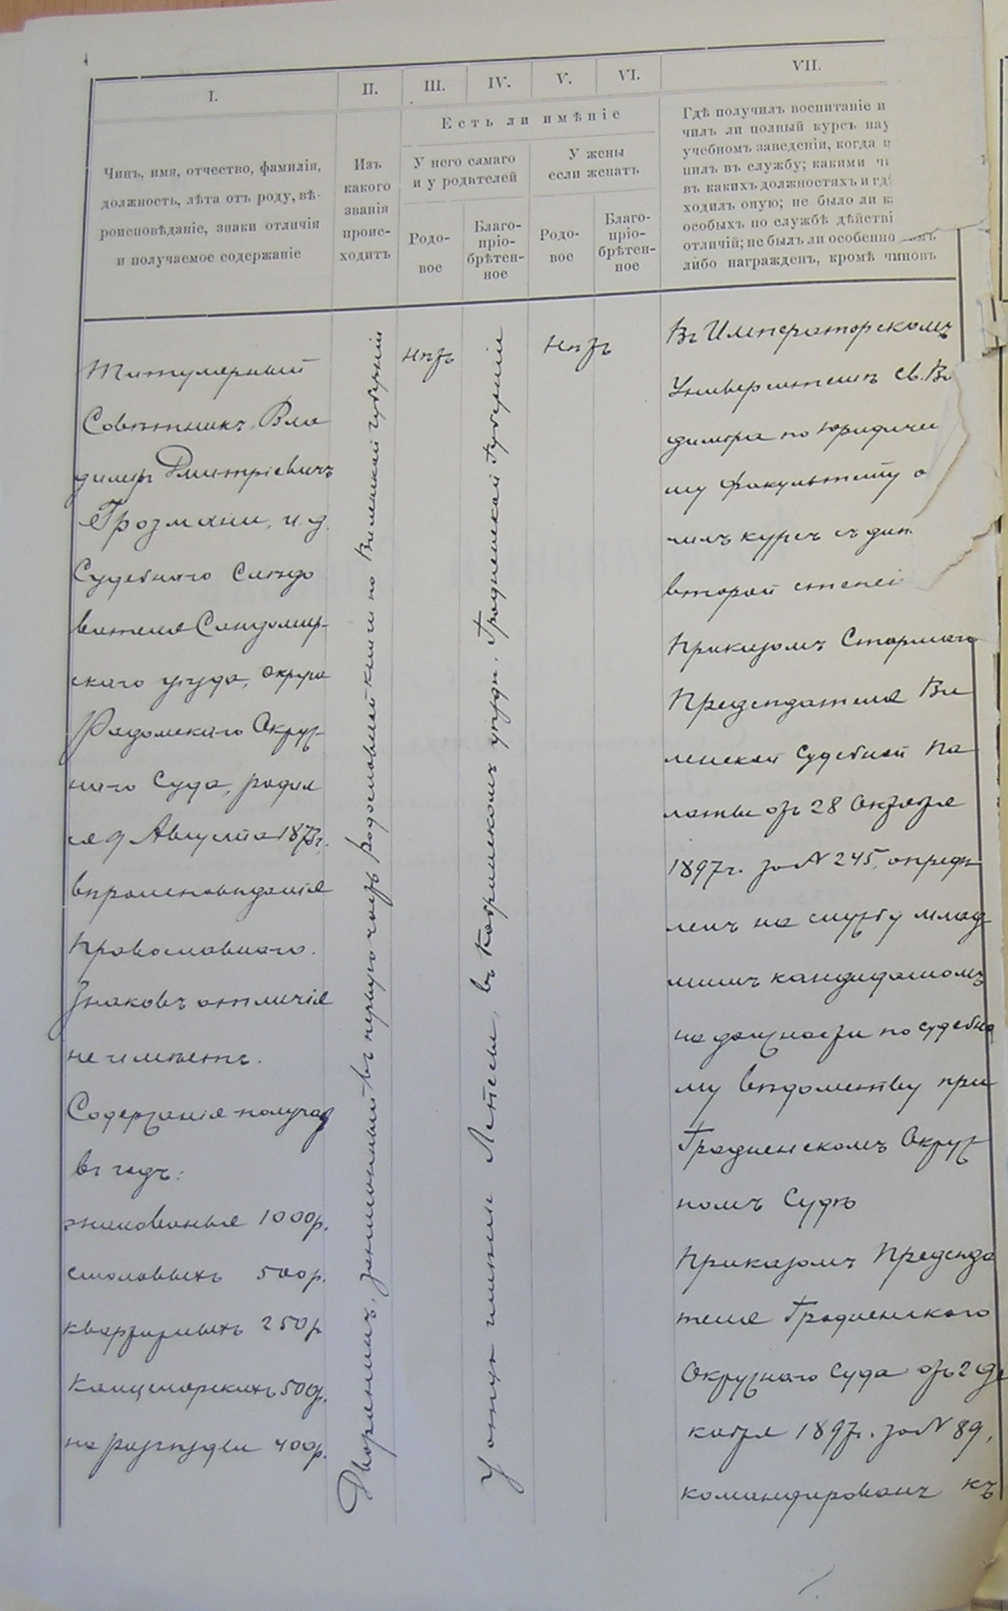 I.
II.
III.
IV.
V.
VI.
VII.
Чинъ, имя, отчество, фамилія,
должность, лѣта отъ роду, вѣ-
роисповѣданіе, знаки отличія
и получаемое содержаніе
Изъ
какого
званія
проис-
ходитъ
Есть ли имѣніе
У него самаго
и у родителей
У жены
если женатъ
Родо-
вое
Благо-
пріо-
брѣтен-
ное
Родо-
вое
Благо-
пріо-
брѣтен-
ное
Гдѣ получилъ воспитаніе и
чилъ ли полный курсъ нау
учебномъ заведеніи, когда
пилъ въ службу; какими
въ какихъ должностяхъ и гдѣ
ходилъ оную; не было ли к
особыхъ по службѣ дѣйстві
отличій; не былъ ли особенно
либо награжденъ, кромѣ чиновъ
Титулярный
Совѣтникъ Вла
димиръ Дмитріевичъ
Грозмани, и. д.
Судебнаго Слѣдо
вателя Сандомир-
скаго уѣзда, округа
Радомскаго Окруж-
наго Суда, родил
ся 9 Августа 1873 г.
вѣроисповѣданія
Православнаго.
Знаковъ отличія
не имѣетъ.
Содержанія получаетъ
въ годъ:
жалованья 1000 р.
столовыхъ 500 р.
квартирныхъ 250 р
канцелярскихъ 500 р.
на разъѣзды 400 р.
Дворянинъ, записанный въ первую часть родословной книги по Виленской губерніи
нѣтъ
У отца имѣніе въ Кобринскомъ уѣздѣ, Гродненской губерніи
нѣтъ
Въ Императорскомъ
Университетѣ Св. Вла
диміра по Юридиче
му факультету о
чилъ курсъ съ дип
второй степен
Приказомъ Старшаго
Предсѣдателя Ви
ленской Судебной Па
латы отъ 28 Октября
1897 г. за № 245, опредѣ
ленъ на службу млад
шимъ кандидатомъ
на должности по судебно
му вѣдомству при
Гродненскомъ Окруж
номъ Судѣ
Приказомъ Предсѣда
теля Гродненскаго
Окружнаго Суда отъ 2 Де
кабря 1897 г. за № 89,
командированъ къ